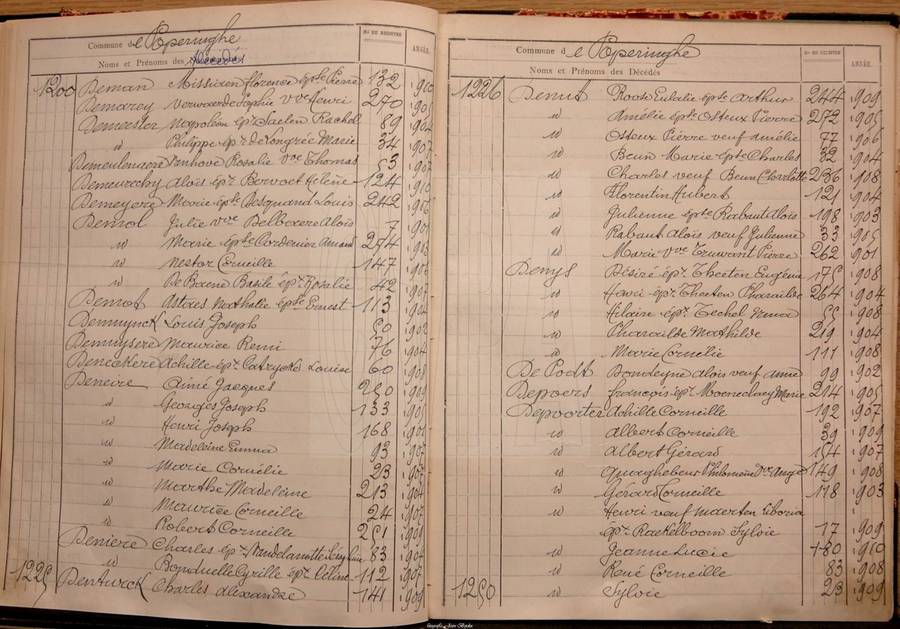 Commune de Poperinghe
Noms et Prénoms des Décédés
No DU REGISTRE
ANNÉE.
1200 Deman Missiaen Florence épse Pierre 132 1910
Demarey Vervaecke Sophie vve Henri 270 190
Demeester Napoléon épx Saelen Rachel 89 1904
id Philippe épx Delongrée Marie 34 1907
Demeulenaere Vanhove Rosalie vve Thomas 53 1907
Demeurechy Aloïs épx Bervoet Hélène 124 1910
Demeyere Marie épse Desquand Louis 242 1906
Demol Julie vve Delbaere Aloïs 7 1901
id Marie épse Cardenier Amand 274 1903
id Nestor Corneille 147 1906
id De Baene Basile épx Rosalie 42 1907
Demot Astaes Nathalie épse Ernest 113 1904
Demuynck Louis Joseph 50 1902
Demuysere Maurice Remi 76 1904
Deneckere Achille épx Catrycke Louise 60 1908
Deneire Aimé Jacques 250 1909
id Georges Joseph 133 190
id Henri Joseph 168 1901
id Madeleine Emma 93 1907
id Marie Cornélie 23 1907
id Marthe Madeleine 213 1904
id Maurice Corneille 24 1907
id Robert Corneille 251 1901
Deniere Charles épx 83 1904
id Bonduelle Cyrille épx Céline 112 1907
1225 Denturck Charles Alexandre 141 1909
Commune de Poperinghe
Noms et Prénoms des Décédés
No DU REGISTRE
ANNÉE.
1226 Denut Roose Eulalie épse Arthur 244 1909
id Amélie épse Osteux Pierre 272 1905
id Osteux Pierre veuf Amélie 77 1906
id Beun Marie épse Charles 32 1904
id Charles veuf Beun Charlotte 286 1908
id Florentin Hubert 121 1904
id Julienne épse Rabaut Aloïs 198 1903
id Rabaut Aloïs veuf Julienne 33 1905
id Marie vve Truwant Pierre 262 1901
Denys Désiré épx Theeten Eugénie 175 1908
id Henri épx Theeten Pharaïlde 264 1904
id Hilaire épx Techel Nina 55 1908
id Pharaïlde Mathilde 219 1904
id Marie Cornélie 111 1908
De Podt Bondeyne Aloïs veuf Anne 99 1902
Depoers François épx Maenclaey Marie 214 1905
Depoorter Achille Corneille 192 1907
id Albert Corneille 39 1909
id Albert Gérard 154 1907
id Quaghebeur Philomène vve Ange 149 1908
id Gérard Corneille 178 1903
id Henri veuf Maerten Liboria
épx Raekelboom Sylvie 17 1909
id Jeanne Lucie 180 1910
id René Corneille 83 1908
1250 id Sylvie 23 1909